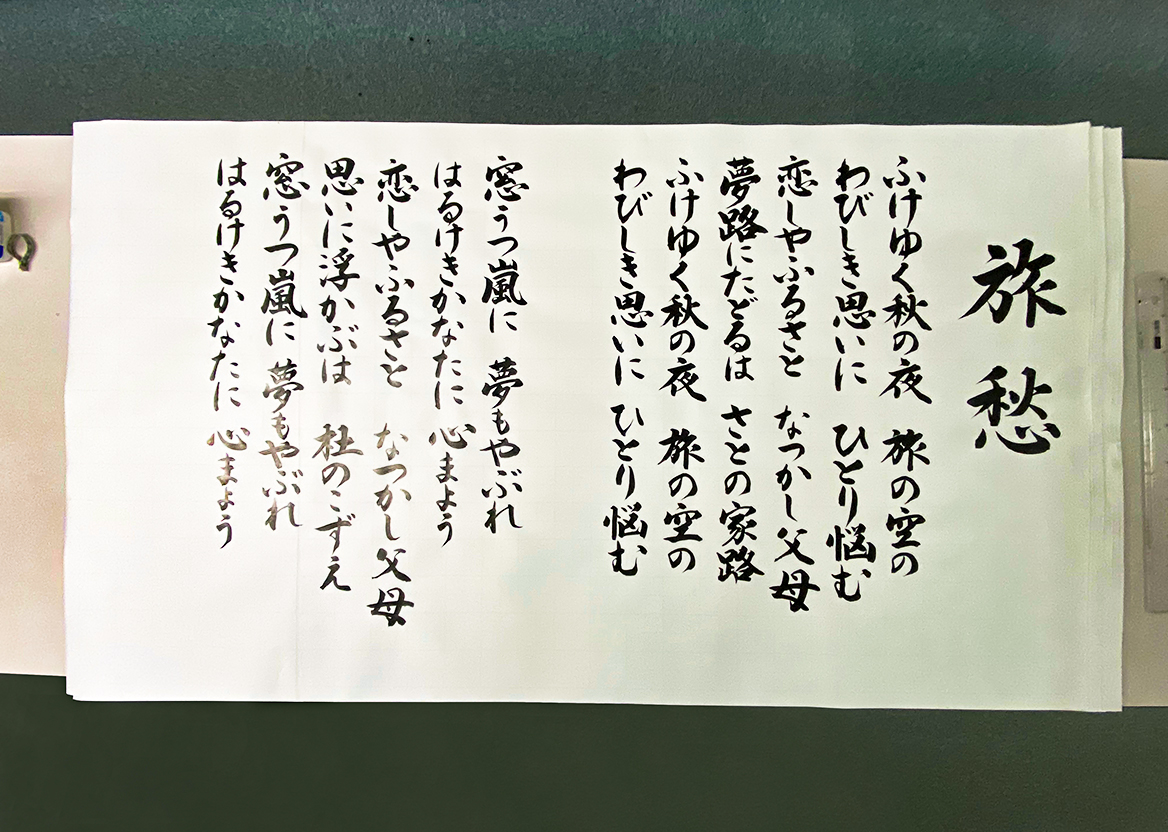 旅愁
ふけゆく秋の夜 旅の空の
わびしき思いに ひとり悩む
恋しやふるさと なつかし父母
夢路にたどるは さとの家路
ふけゆく秋の夜 旅の空の
わびしき思いに ひとり悩む
窓うつ嵐に 夢もやぶれ
はるけきかなたに 心まよう
恋しやふるさと なつかし父母
思いに浮かぶは 杜のこずえ
窓うつ嵐に 夢もやぶれ
はるけきかなたに 心まよう